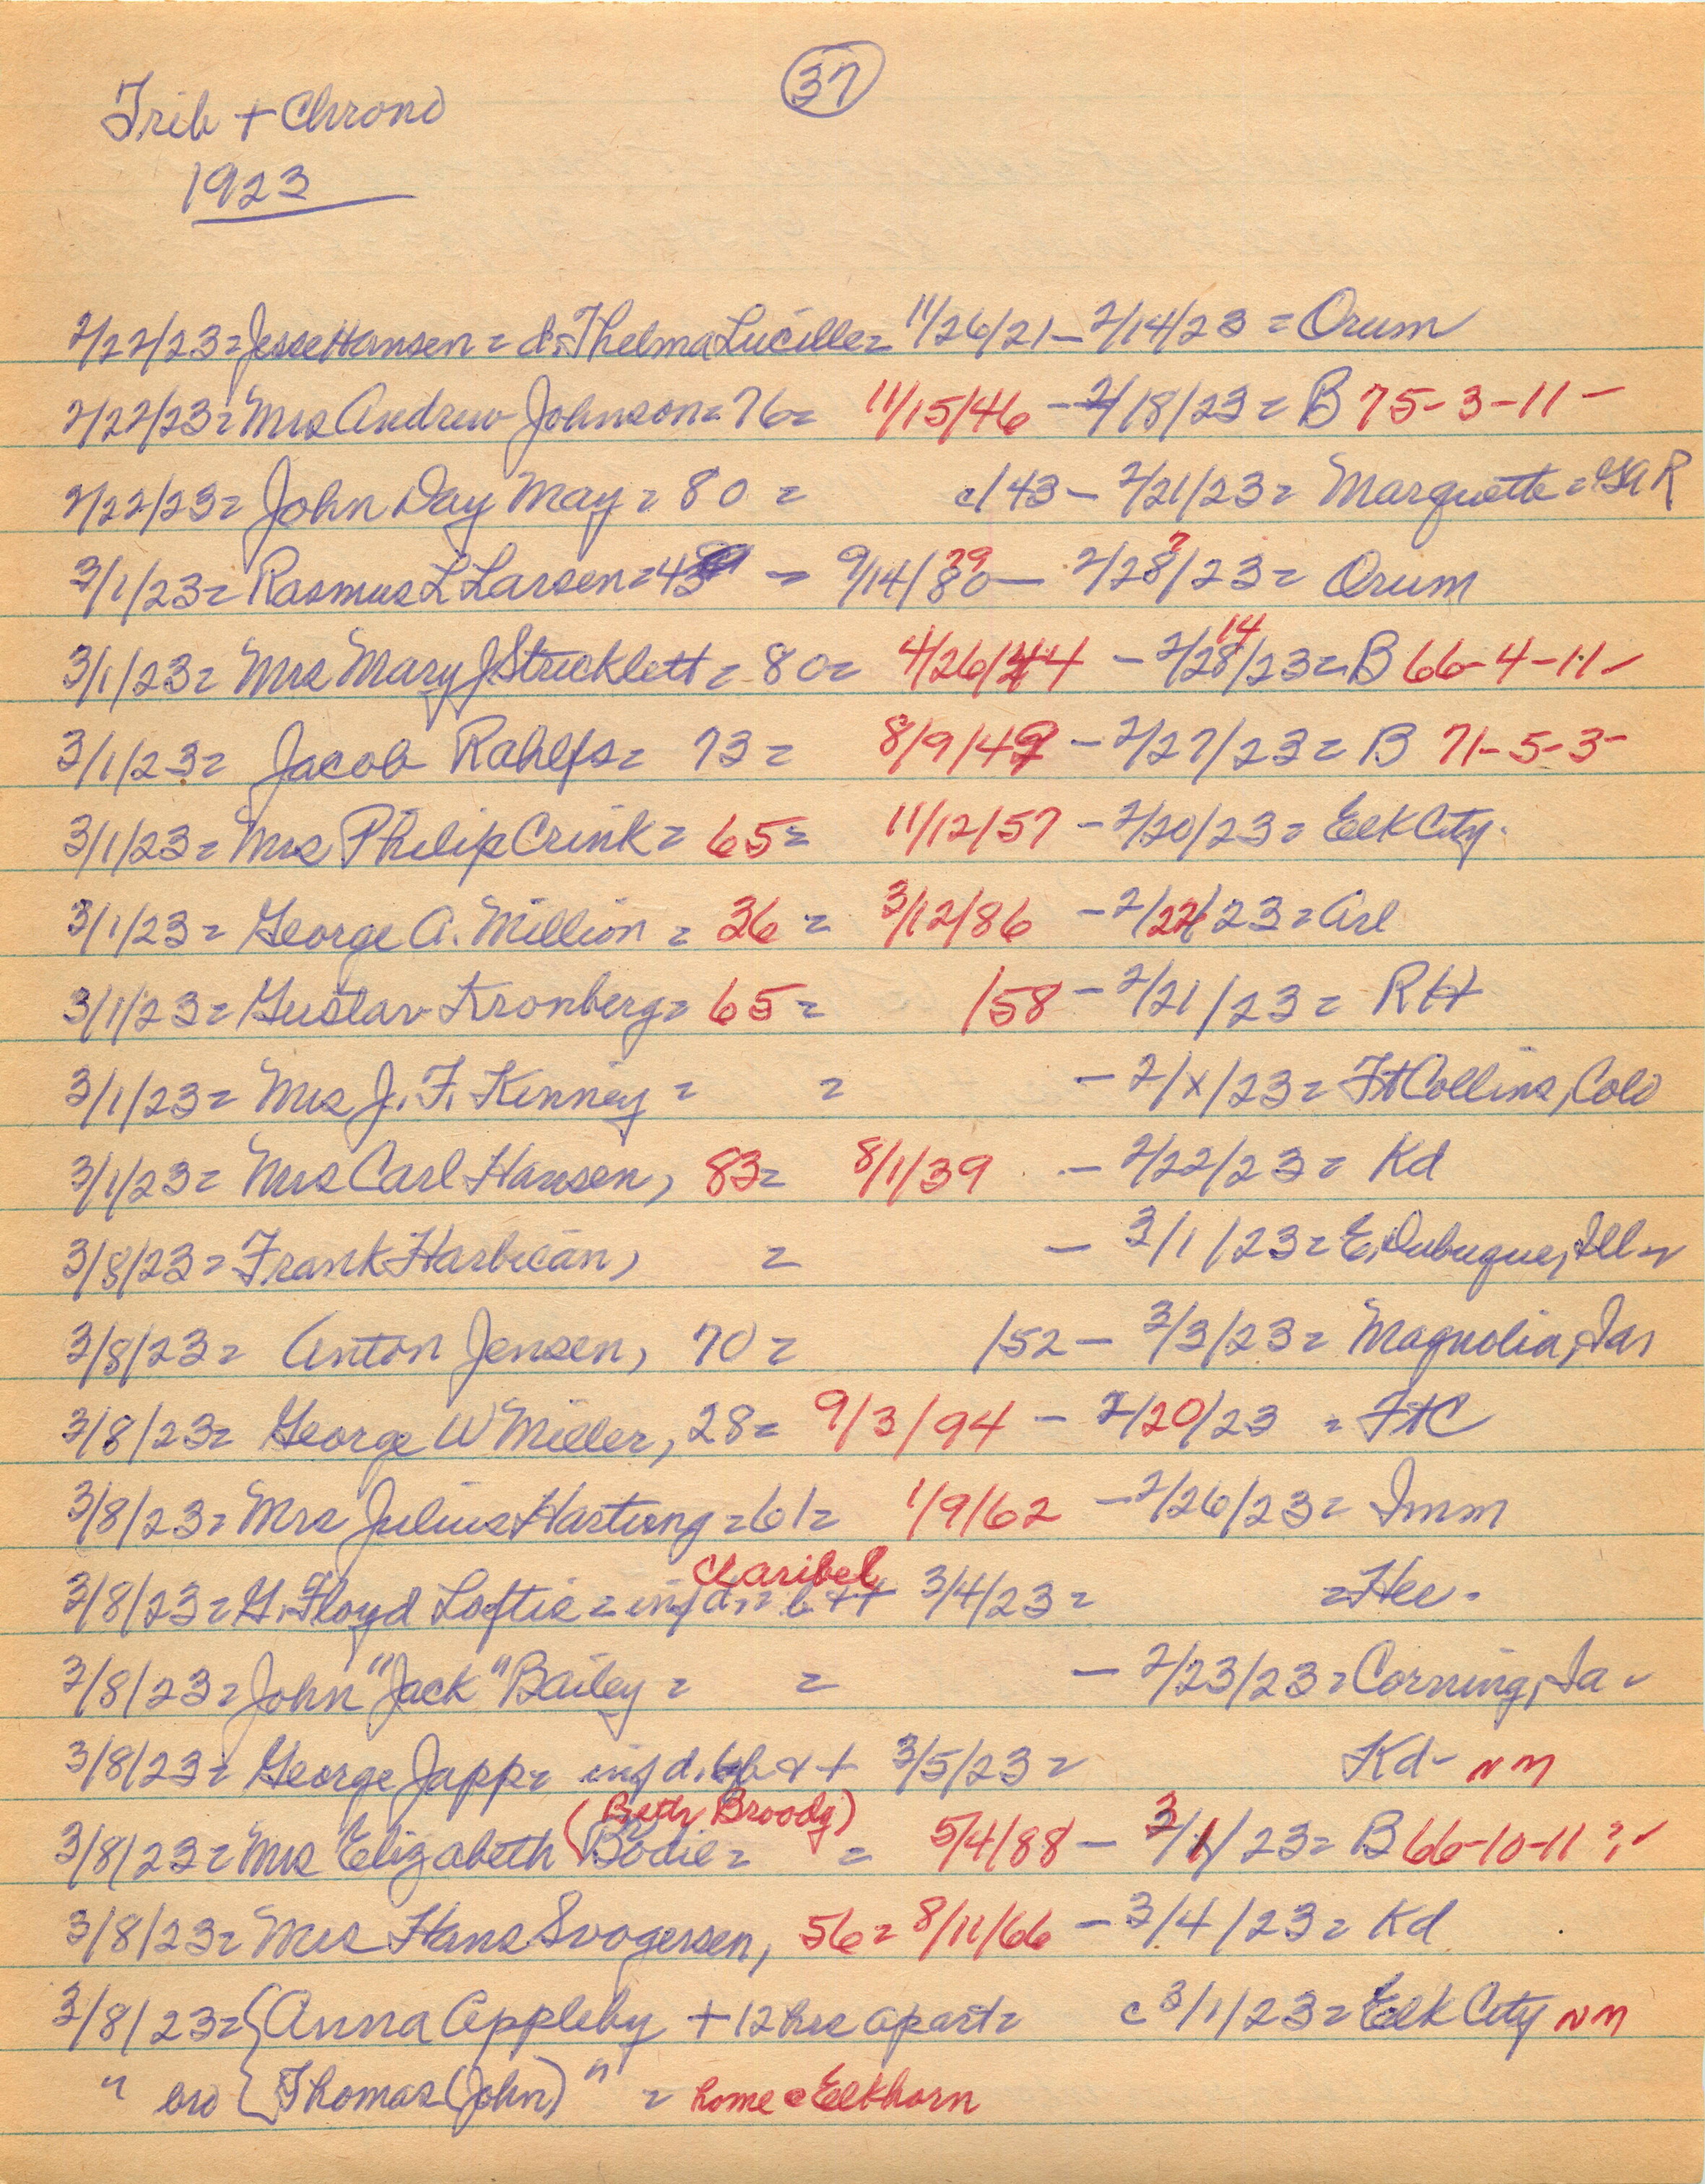 37
Trib + Chrono
1923
2/22/23 = Jesse Hansen = d. Thelma Lucille = 11/26/21 - 2/14/23 = Orum
2/22/23 = Mrs Andrew Johnson = 76 = 11/15/46 - 2/18/23 = B 75-3-11 -
2/22/23 = John Day May = 80 = c/43 - 2/21/23 = Marquette = GAR
3/1/23 = Rasmus L Larsen = 43 = 9/14/80 79 - 2/28/23 ? = Orum
3/1/23 = Mrs Mary J Stricklett = 80 = 4/26/44 - 2/28/23 14 = B 66-4-11 -
3/1/23 = Jacob Rahlfs = 73 = 8/9/49 - 2/27/23 = B 71-5-3 -
3/1/23 = Mrs Philip Crink = 65 = 11/12/57 - 2/20/23 = Elk City.
3/1/23 = George A. Million = 36 = 3/12/86 - 2/22/23 = Arl
3/1/23 = Gustav Kronberg = 65 = /58 - 2/21/23 = RH
3/1/23 = Mrs J. F. Kenney = = - 2/x/23 = Ft Collins, Colo
3/1/23 = Mrs Carl Hansen, 83 = 8/1/39 - 2/22/23 = Kd
3/8/23 = Frank Harbican, = - 3/1/23 = E. Dubuque, Ill
3/8/23 = Anton Jensen, 70 = /52 - 3/3/23 = Magnolia, Ia
3/8/23 = George W Miller, 28 = 9/3/94 - 2/20/23 = FtC
3/8/23 = Mrs Julius Hartung = 61 = 1/9/62 - 2/26/23 = Imm
Claribel
3/8/23 = G. Floyd Loftis = inf d. = b + + 3/4/23 = = Her.
3/8/23 = John "Jack" Bailey = = - 2/23/23 = Corning, Ia
3/8/23 = George Japp = inf d. b + + 3/5/23 = Kd - NM
(Beth Broody)
3/8/23 = Mrs Elizabeth Bodie = = 5/4/88 - 3/1/23 = B 66-10-11 ?
3/8/23 = Mrs Hans Svogersen, 56 = 8/11/66 - 3/4/23 = Kd
3/8/23 = { Anna Appleby + 12 hrs apart = c 3/1/23 = Elk City NM
" bro { Thomas (John) " = home c Elkhorn